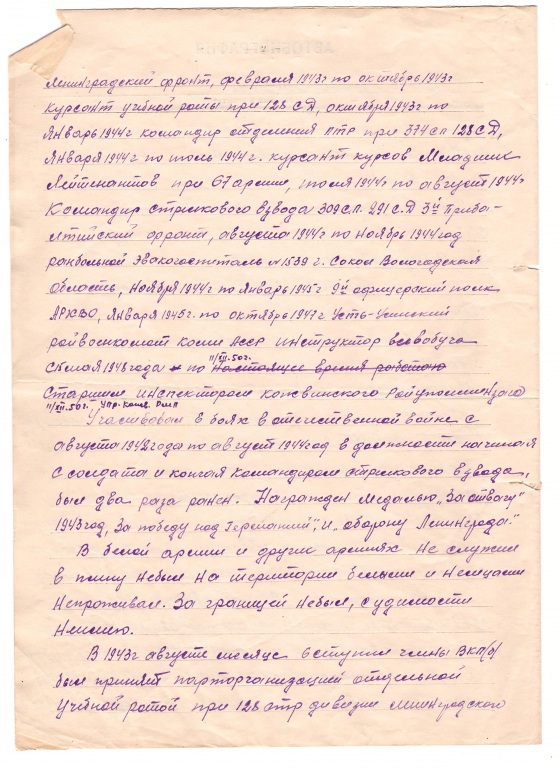 АВТОБИОГРАФИЯ
Ленинградский фронт, февраля 1943г по октябрь 1943г
курсант учебной роты при 128 СД, октября 1943г по
Январь 1944г командир отделения ПТР при 374 СП 128 СД,
Января 1944г по июль 1944г. курсант курсов Младших
Лейтенантов при 67 армии, июля 1944г по август 1944г
Командир стрелкового взвода 309 С.П. 291 С.Д 3й Приба-
лтийский фронт, августа 1944г по ноябрь 1944 год
ранбольной Эвакогоспиталь N 1539 г. Сокол Вологодская
область, Ноября 1944г по январь 1945г 9й офицерский полк
АРХВО, Января 1945г. по октябрь 1947г Усть-Усинский
райвоенкомат Коми АССР инструктор всевобуча
С мая 1948 года по 11/XII.50г. настоящее время работаю
Старшим инспектором Кожвинского Райуполминзаго
11/XII.50г. Упр. Кожв.
Участвовал в боях в отечественной войне с
августа 1942 года по август 1944 год в должности начиная
с солдата и кончая командиром стрелкового взвода,
был два раза ранен. Награжден медалью „За отвагу"
1943 год, За победу над Германией", и „оборону Ленинграда."
В белой армии и других армиях не служил
в плену небыл на територии белыми и немцами
Непроживал. За границей небыл, судимости
Неимею.
В 1943г августе месяце вступил члены ВКП/б/
был принят парторганизацией отдельной
Учебной ротой при 128 стр дивизии Ленинградского